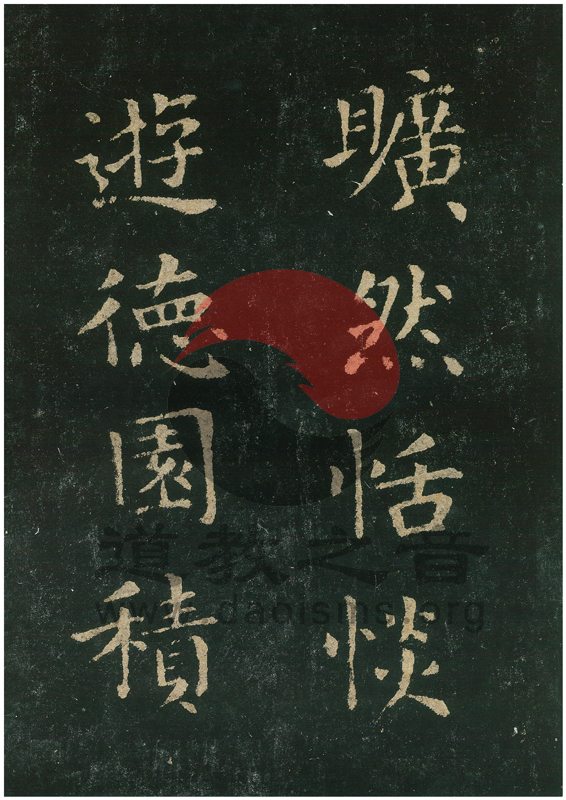 曠然恬惔
遊德園積
道教之音
www.daoisms.org